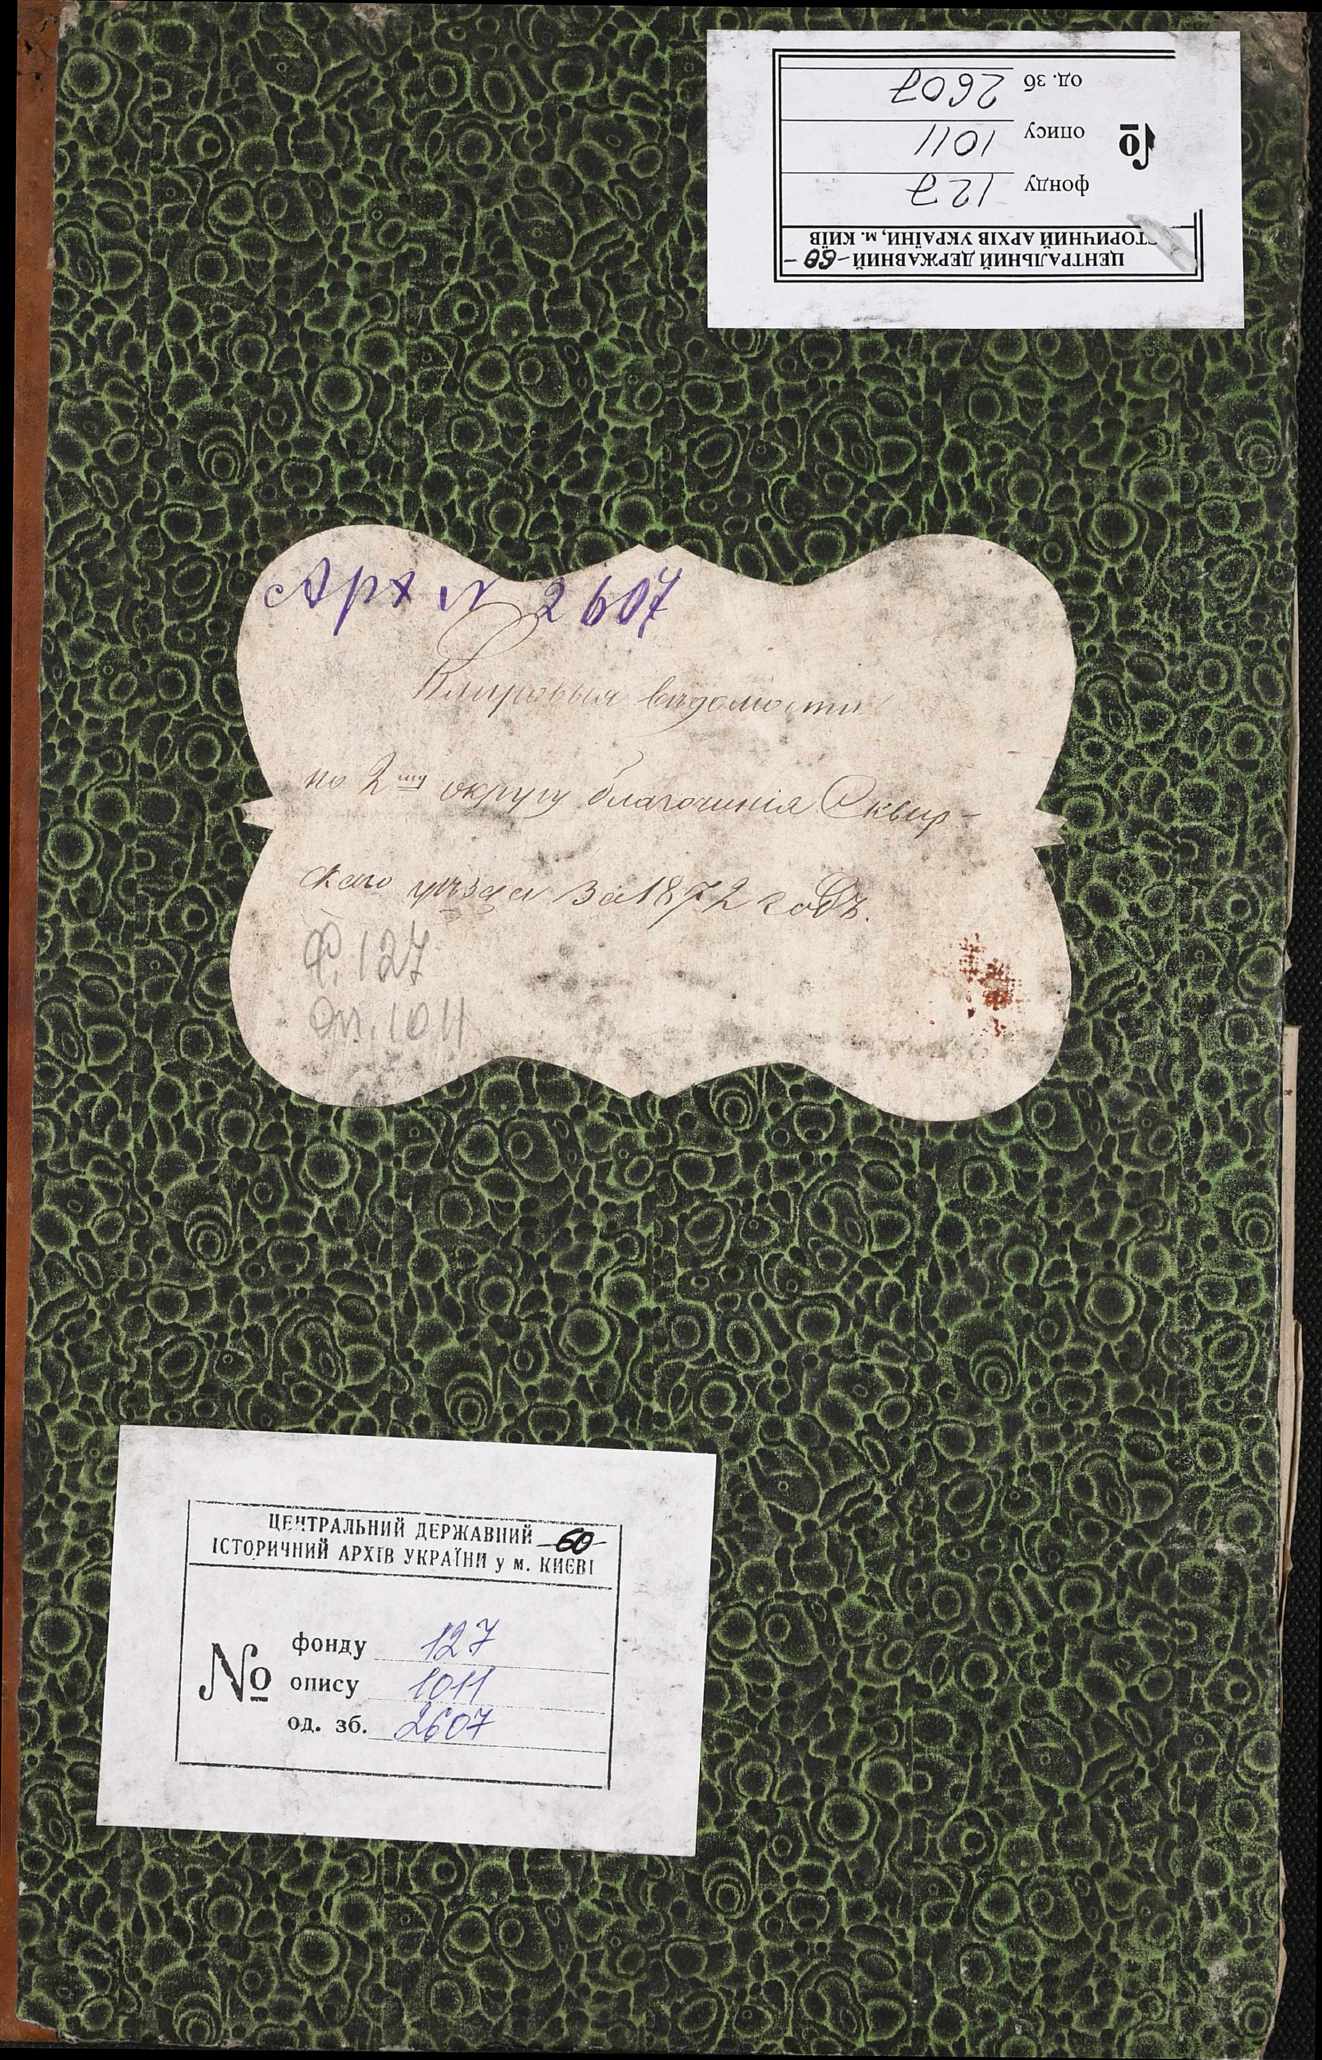 ЦЕНТРАЛЬНИЙ ДЕРЖАВНИЙ -60-
ІСТОРИЧНИЙ АРХІВ УКРАЇНИ, м. КИЇВ
№
фонду 127
опису 1011
од. зб 2607
Арх № 2607
Клировыя вѣдомости
по 2му округу благочинія Сквир-
скаго уѣзда за 1872 годъ.
Ф. 127
Оп. 1011
ЦЕНТРАЛЬНИЙ ДЕРЖАВНИЙ -60-
ІСТОРИЧНИЙ АРХІВ УКРАЇНИ у м. КИЄВІ
№
фонду 127
опису 1011
од. зб. 2607